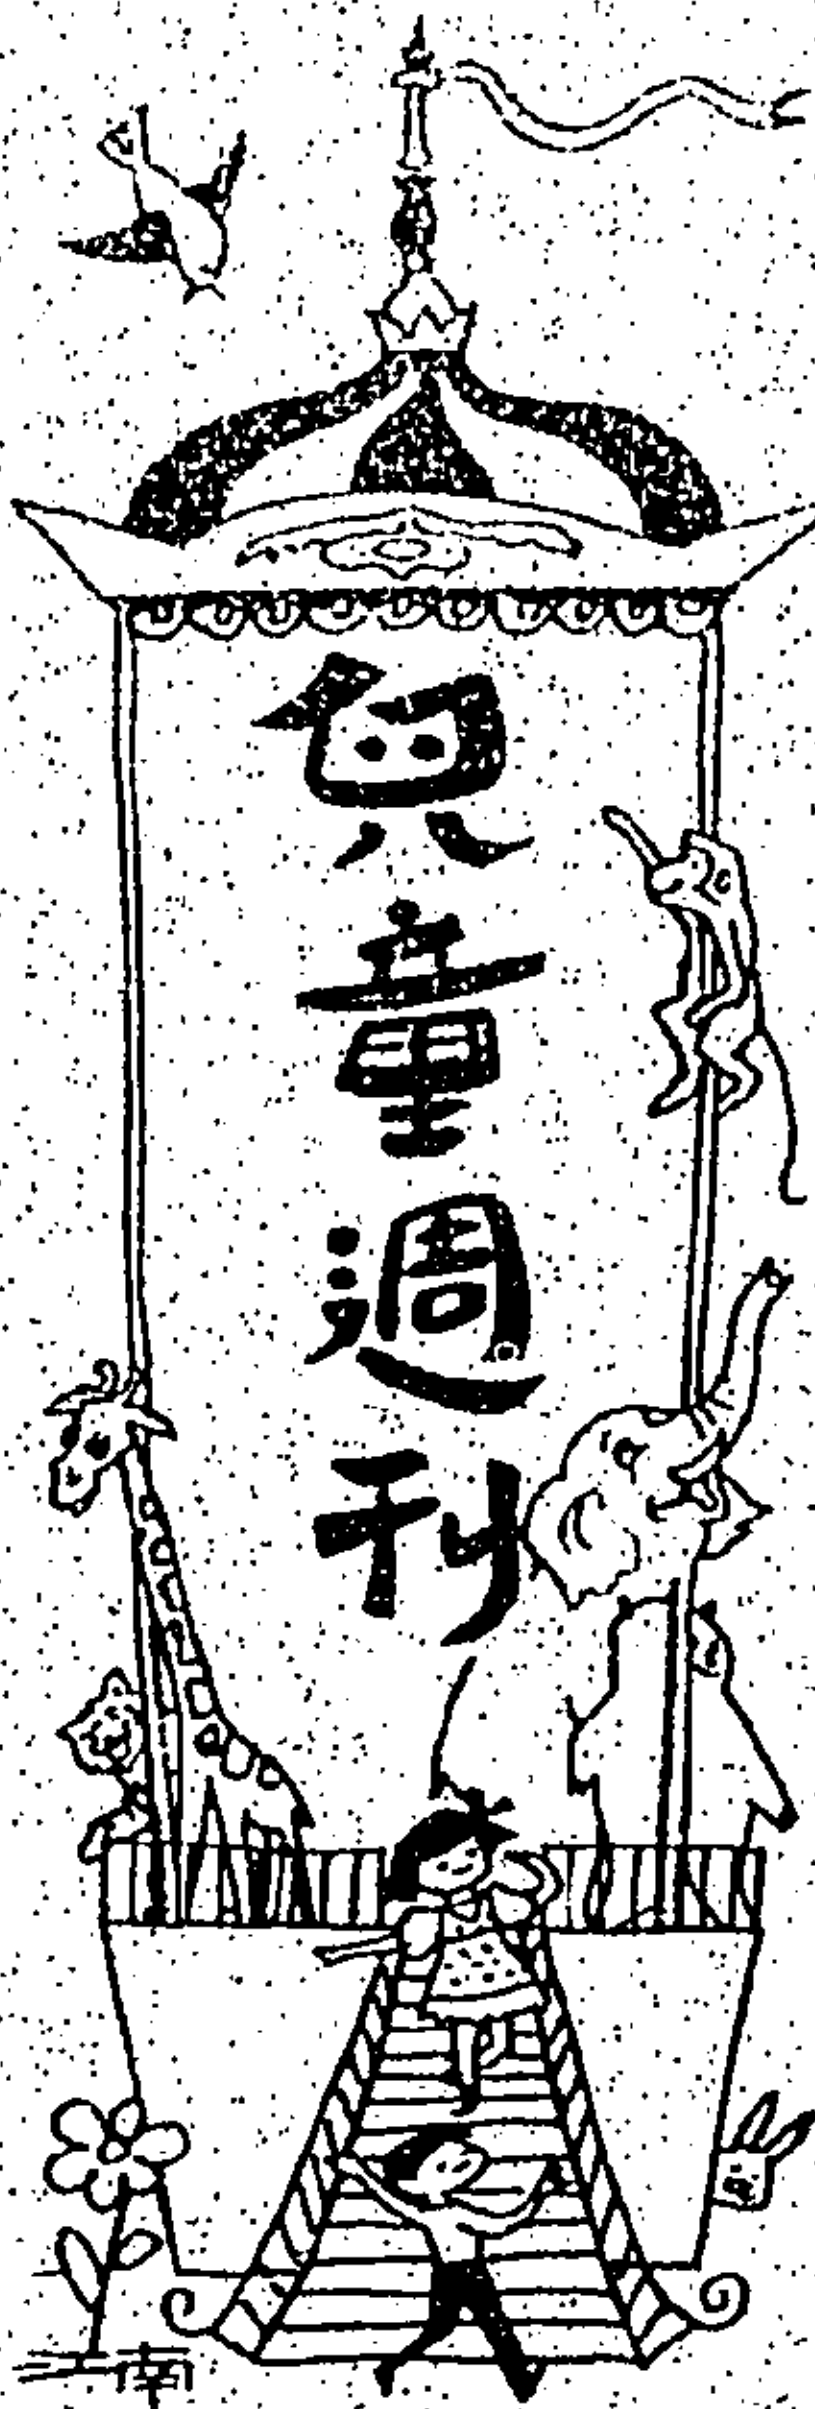 兒童週刊
江南